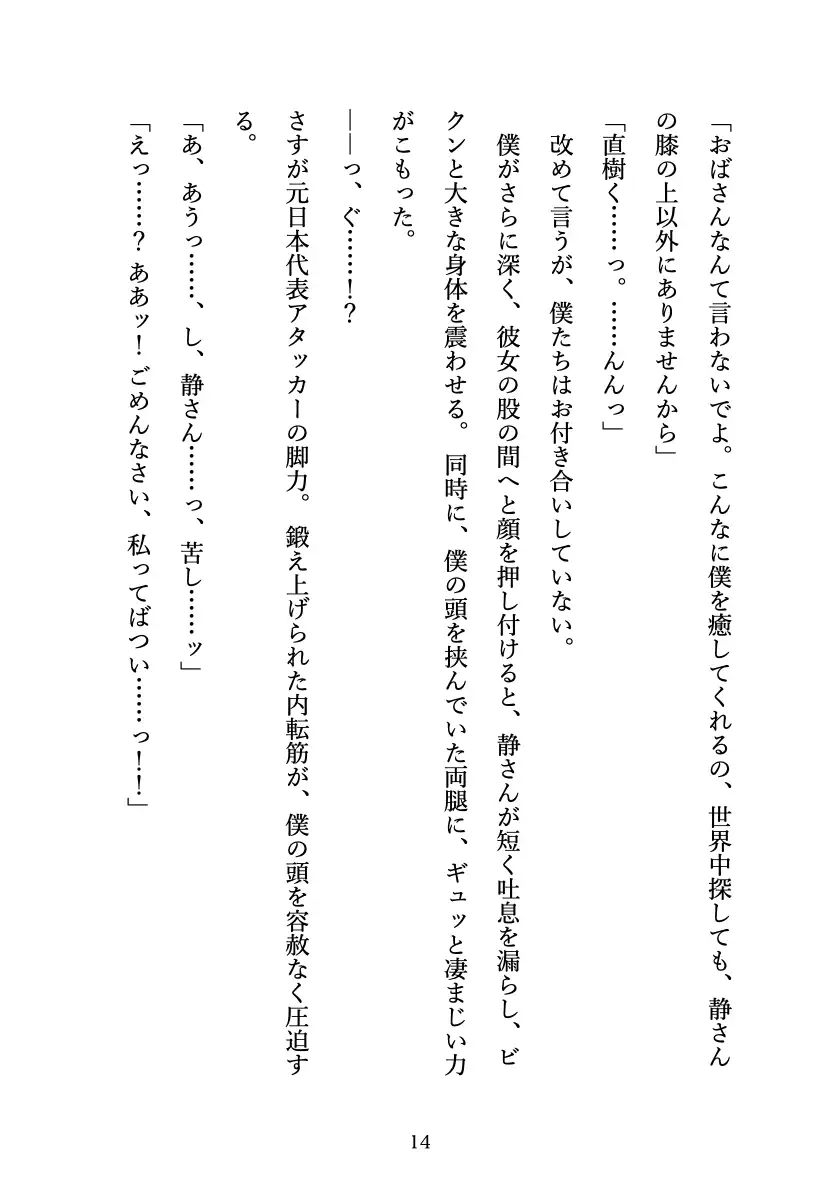 「おばさんなんて言わないでよ。こんなに僕を癒してくれるの、世界中探しても、静さん
の膝の上以外にありませんから」
「直樹く……っ。……んんっ」
改めて言うが、僕たちはお付き合いしていない。
僕がさらに深く、彼女の股の間へと顔を押し付けると、静さんが短く吐息を漏らし、ビ
クンと大きな身体を震わせる。同時に、僕の頭を挟んでいた両腿に、ギュッと凄まじい力
がこもった。
――っ、ぐ……!?
さすが元日本代表アタッカーの脚力。鍛え上げられた内転筋が、僕の頭を容赦なく圧迫す
る。
「あ、あうっ……、し、静さん……っ、苦し……ッ」
「えっ……? ああッ! ごめんなさい、私ってばつい……っ!!」
14